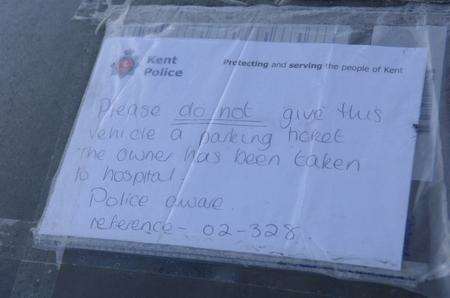 Kent
Police
Protecting and serving the people of Kent
Please do not give this
vehicle a parking ticket
The owner has been taken
to hospital.
Police aware.
reference - 02-328